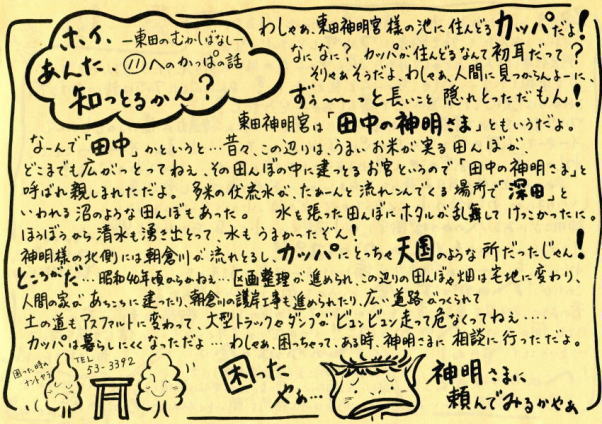 ホイ、
あんた、
知っとるかん?
―東田のむかしばなし―
⑪へのかっぱの話
わしゃあ、東田神明宮様の池に住んどるカッパだよ!
なにない? カッパが住んどるなんて初耳だって?
そりゃあそうだよ、わしゃあ、人間に見つからんよーに、
ずぅ〜〜っと長いこと隠れとっただもん!
東田神明宮は「田中の神明さま」ともいうだよ。
なーんで「田中」かというと…昔々、この辺りは、うまいお米が実る田んぼが、
どこまでも広がっとってねぇ、その田んぼの中に建っとるお宮というので「田中の神明さま」と
呼ばれ親しまれただよ。 多米の伏流水が、たぁーんと流れこんでくる場所で「深田」と
いわれる沼のような田んぼもあった。 水を張った田んぼにホタルが乱舞してけっこかったに。
ほうぼうから清水も湧き出とって、水もうまかったぞん!
神明様の北側には朝倉川が流れとるし、カッパにとっちゃ天国のような所だったじゃん!
ところがだ…昭和40年頃からかねぇ…区画整理が進められ、この辺りの田んぼや畑は宅地に変わり、
人間の家があちこちに建ったり、朝倉川の護岸工事も進められたり、広い道路がつくられて
土の道もアスファルトに変わって、大型トラックやダンプがビュンビュン走って危なくってねぇ‥‥
カッパは暮らしにくくなっただよ…わしゃあ、困っちゃって、ある時、神明さまに相談に行っただよ。
困った時の
TEL
53-3392
困った
やぁ…
神明さまに
頼んでみるかやぁ